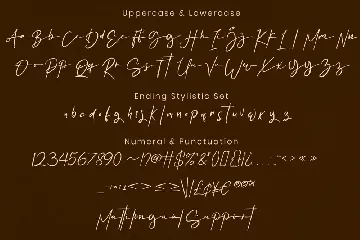 Uppercase & Lowercase
Aa Bb Cc Dd Ee Ff Gg Hh Ii Jj Kk Ll Mm Nn
Oo Pp Qq Rr Ss Tt Uu Vv Ww Xx Yy Zz
Ending Stylistic Set
a b c d e f g h i j k l m n o p q r s t u v w x y z
Numeral & Punctuation
1234567890
Multilingual Support